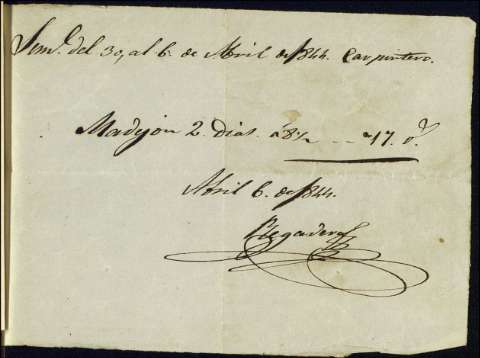 Sem.ª del 30, al 6 de Abril de 1844. Carpintero.
Madijon 2. dias. a 8½ -- 17. r.ˢ
Abril 6. de 1844.
Regadera